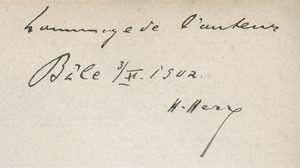 hommage de l'auteur
Bâle 3/XI. 1902.
H. Herz